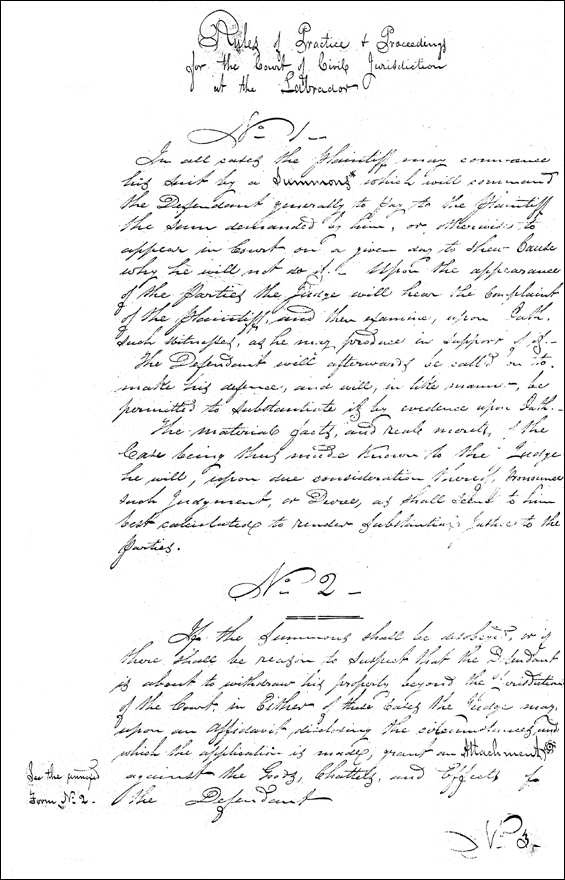 Rules of Practice & Proceedings
for the Court of Civil Jurisdiction
at the Labrador
No. 1 —
In all cases the Plaintiff may commence
his Suit by a Summons* which will command
the Defendant generally to pay to the Plaintiff
the Sum demanded by him, or, otherwise to
appear in Court on a given day to shew Cause
why he will not do it. — Upon the appearance
of the Parties the Judge will hear the Complaint
of the Plaintiff, and then examine, upon Oath,
such Witnesses, as he may produce in support of it. —
The Defendant will afterwards be call'd on to
make his defence, and will, in like manner, be
permitted to substantiate it by evidence upon Oath. —
The material facts, and real merits, of the
Case being thus made known to the Judge
he will, upon due consideration thereof, pronounce
such Judgement, or Decree, as shall seem to him
best calculated to render substantial Justice to the
Parties.
No. 2 —
If the Summons shall be disobeyed, or if
there shall be reason to suspect that the Defendant
is about to withdraw his property beyond the Jurisdiction
of the Court, in Either of these Cases the Judge may,
upon an Affidavit disclosing the circumstances, under
which the application is made, grant an Attachment
against the Goods, Chattels, and Effects of
See the annexed
Form No. 2.
the Defendant
No. 3 —